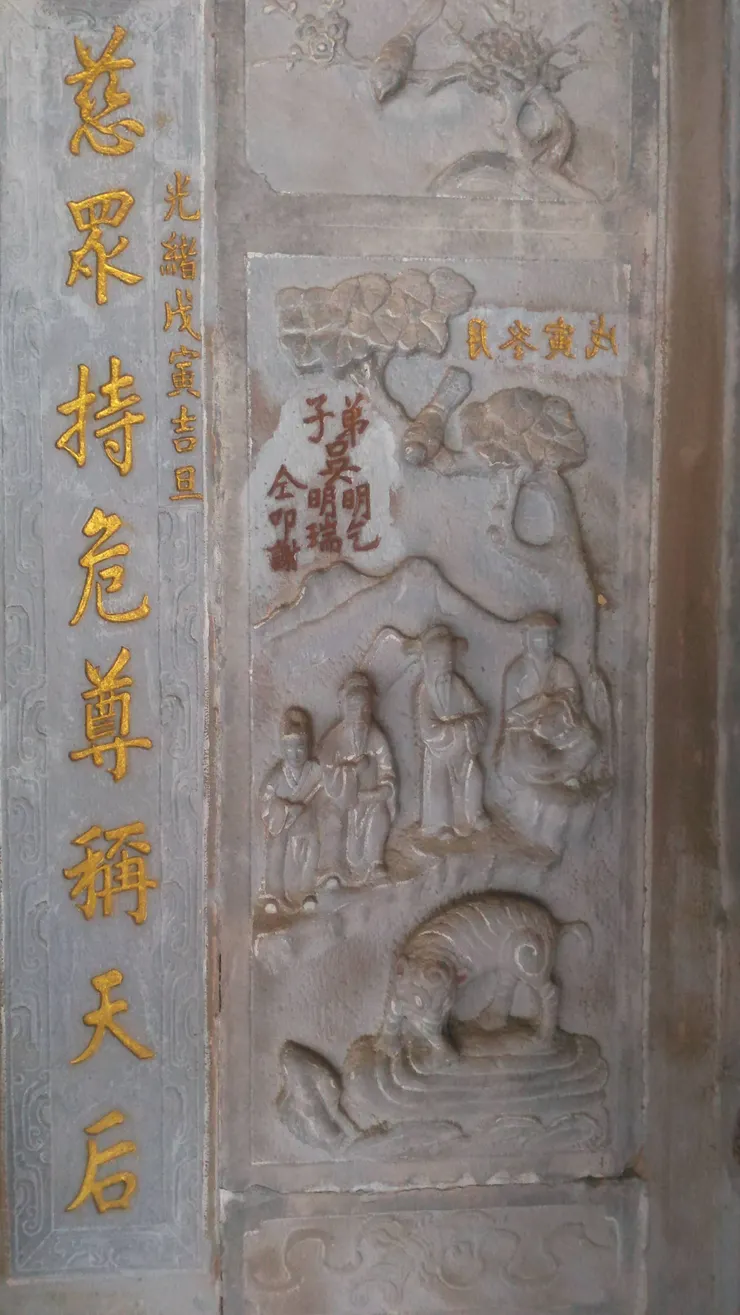 戊寅冬月
弟子吳明乞
明瑞
仝叩謝
光緒戊寅吉旦
慈眾持危尊稱天后